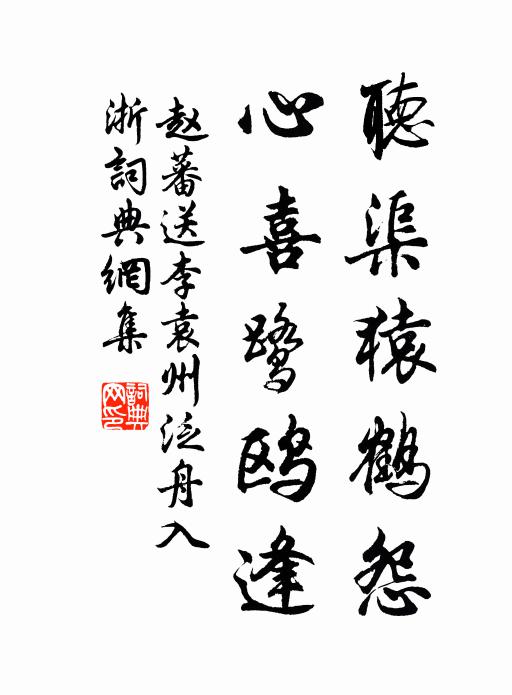 聽渠猿鶴怨
心喜鹭鸥逢
赵蕃送李袁州泛舟入
浙詞典網集
詞典
网印